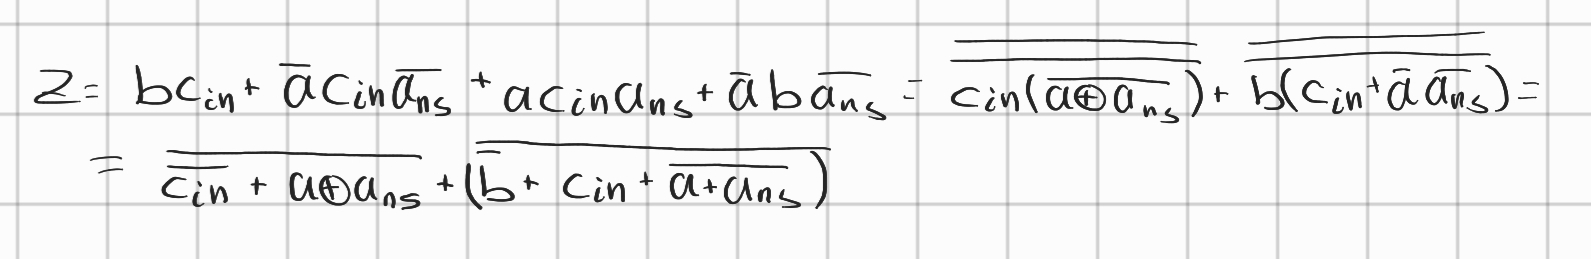 Z = bc_in + a̅ c_in a̅_ns + a c_in a_ns + a̅ b a̅_ns = \overline{\overline{c_in(\overline{a⊕a_ns})}} + \overline{\overline{b(c_in + a̅ a̅_ns)}} =
= \overline{\overline{c_in} + a⊕a_ns} + (\overline{\overline{b} + c_in + \overline{a+a_ns}})